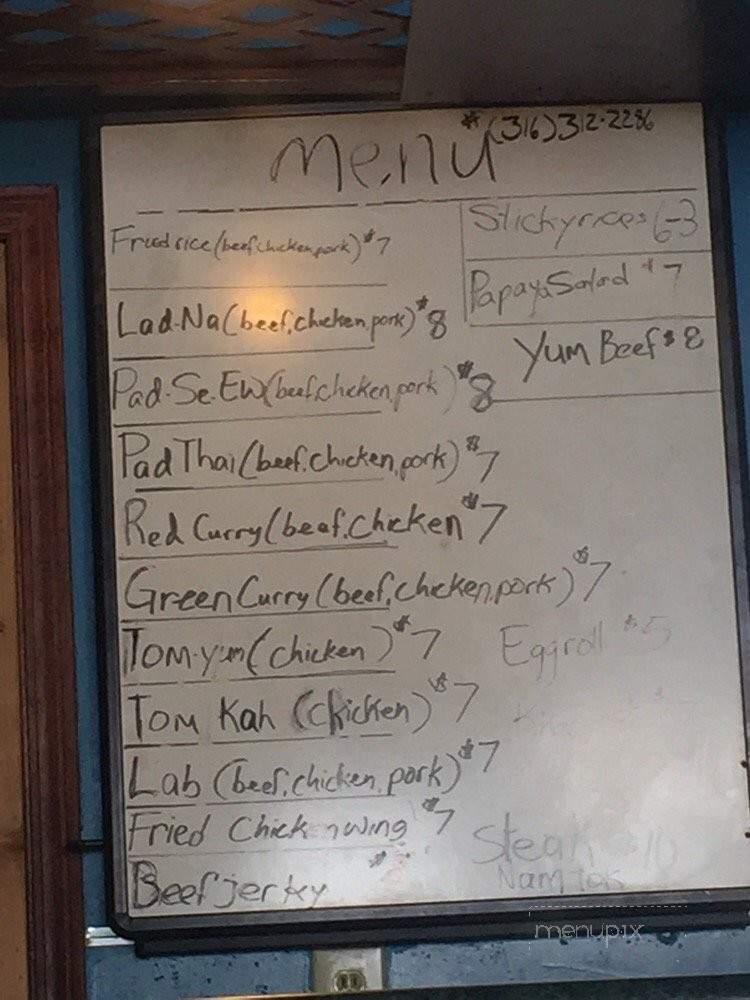 Menu
*(316)312-2286
Fried rice (beef,chicken,pork) $7
Lad-Na (beef,chicken,pork) $8
Pad-Se.Ew (beef,chicken,pork) $8
Pad Thai (beef,chicken,pork) $7
Red Curry (beef,chicken $7
Green Curry (beef,chicken,pork) $7
Tom-yum (chicken) $7
Tom Kah (chicken) $7
Lab (beef,chicken,pork) $7
Fried Chickenwing $7
Beef jerky
Stickyrice
Papaya Salad $7
Yum Beef $8
Eggroll $5
Steak
Nam tok
menupix